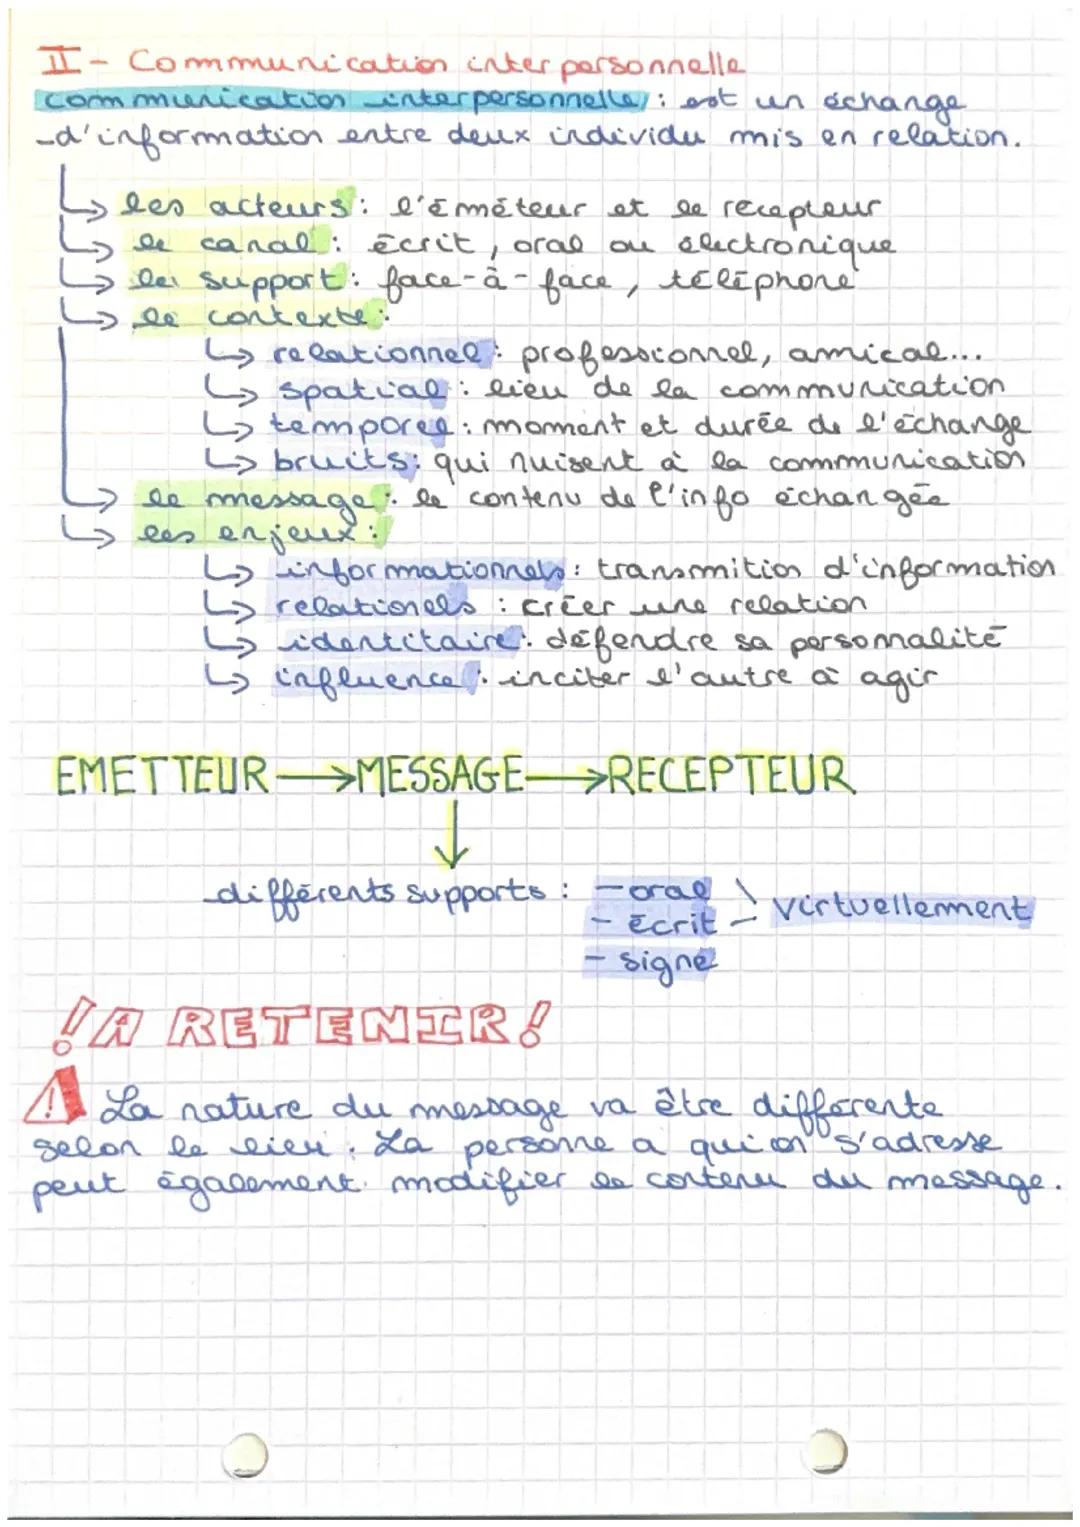 II - Communication interpersonnelle
communication interpersonnelle : est un échange
d'information entre deux individu mis en relation.
↳ les acteurs : l'éméteur et le recepteur
↳ le canal : écrit, oral ou électronique
↳ le support : face-à-face, téléphone
↳ le contexte :
↳ relationnel : professionnel, amical...
↳ spatial : lieu de la communication
↳ temporel : moment et durée de l'échange
↳ bruits : qui nuisent à la communication
↳ le message : le contenu de l'info échangée
↳ les enjeux :
↳ informationnels : transmition d'information
↳ relationels : créer une relation
↳ identitaire : défendre sa personnalité
↳ influence : inciter l'autre à agir
EMETTEUR → MESSAGE → RECEPTEUR
↓
différents supports : - oral
- écrit - virtuellement
- signe
! A RETENIR !
⚠ La nature du message va être différente
selon le lieu. La personne a qui on s'adresse
peut également modifier le contenu du message.